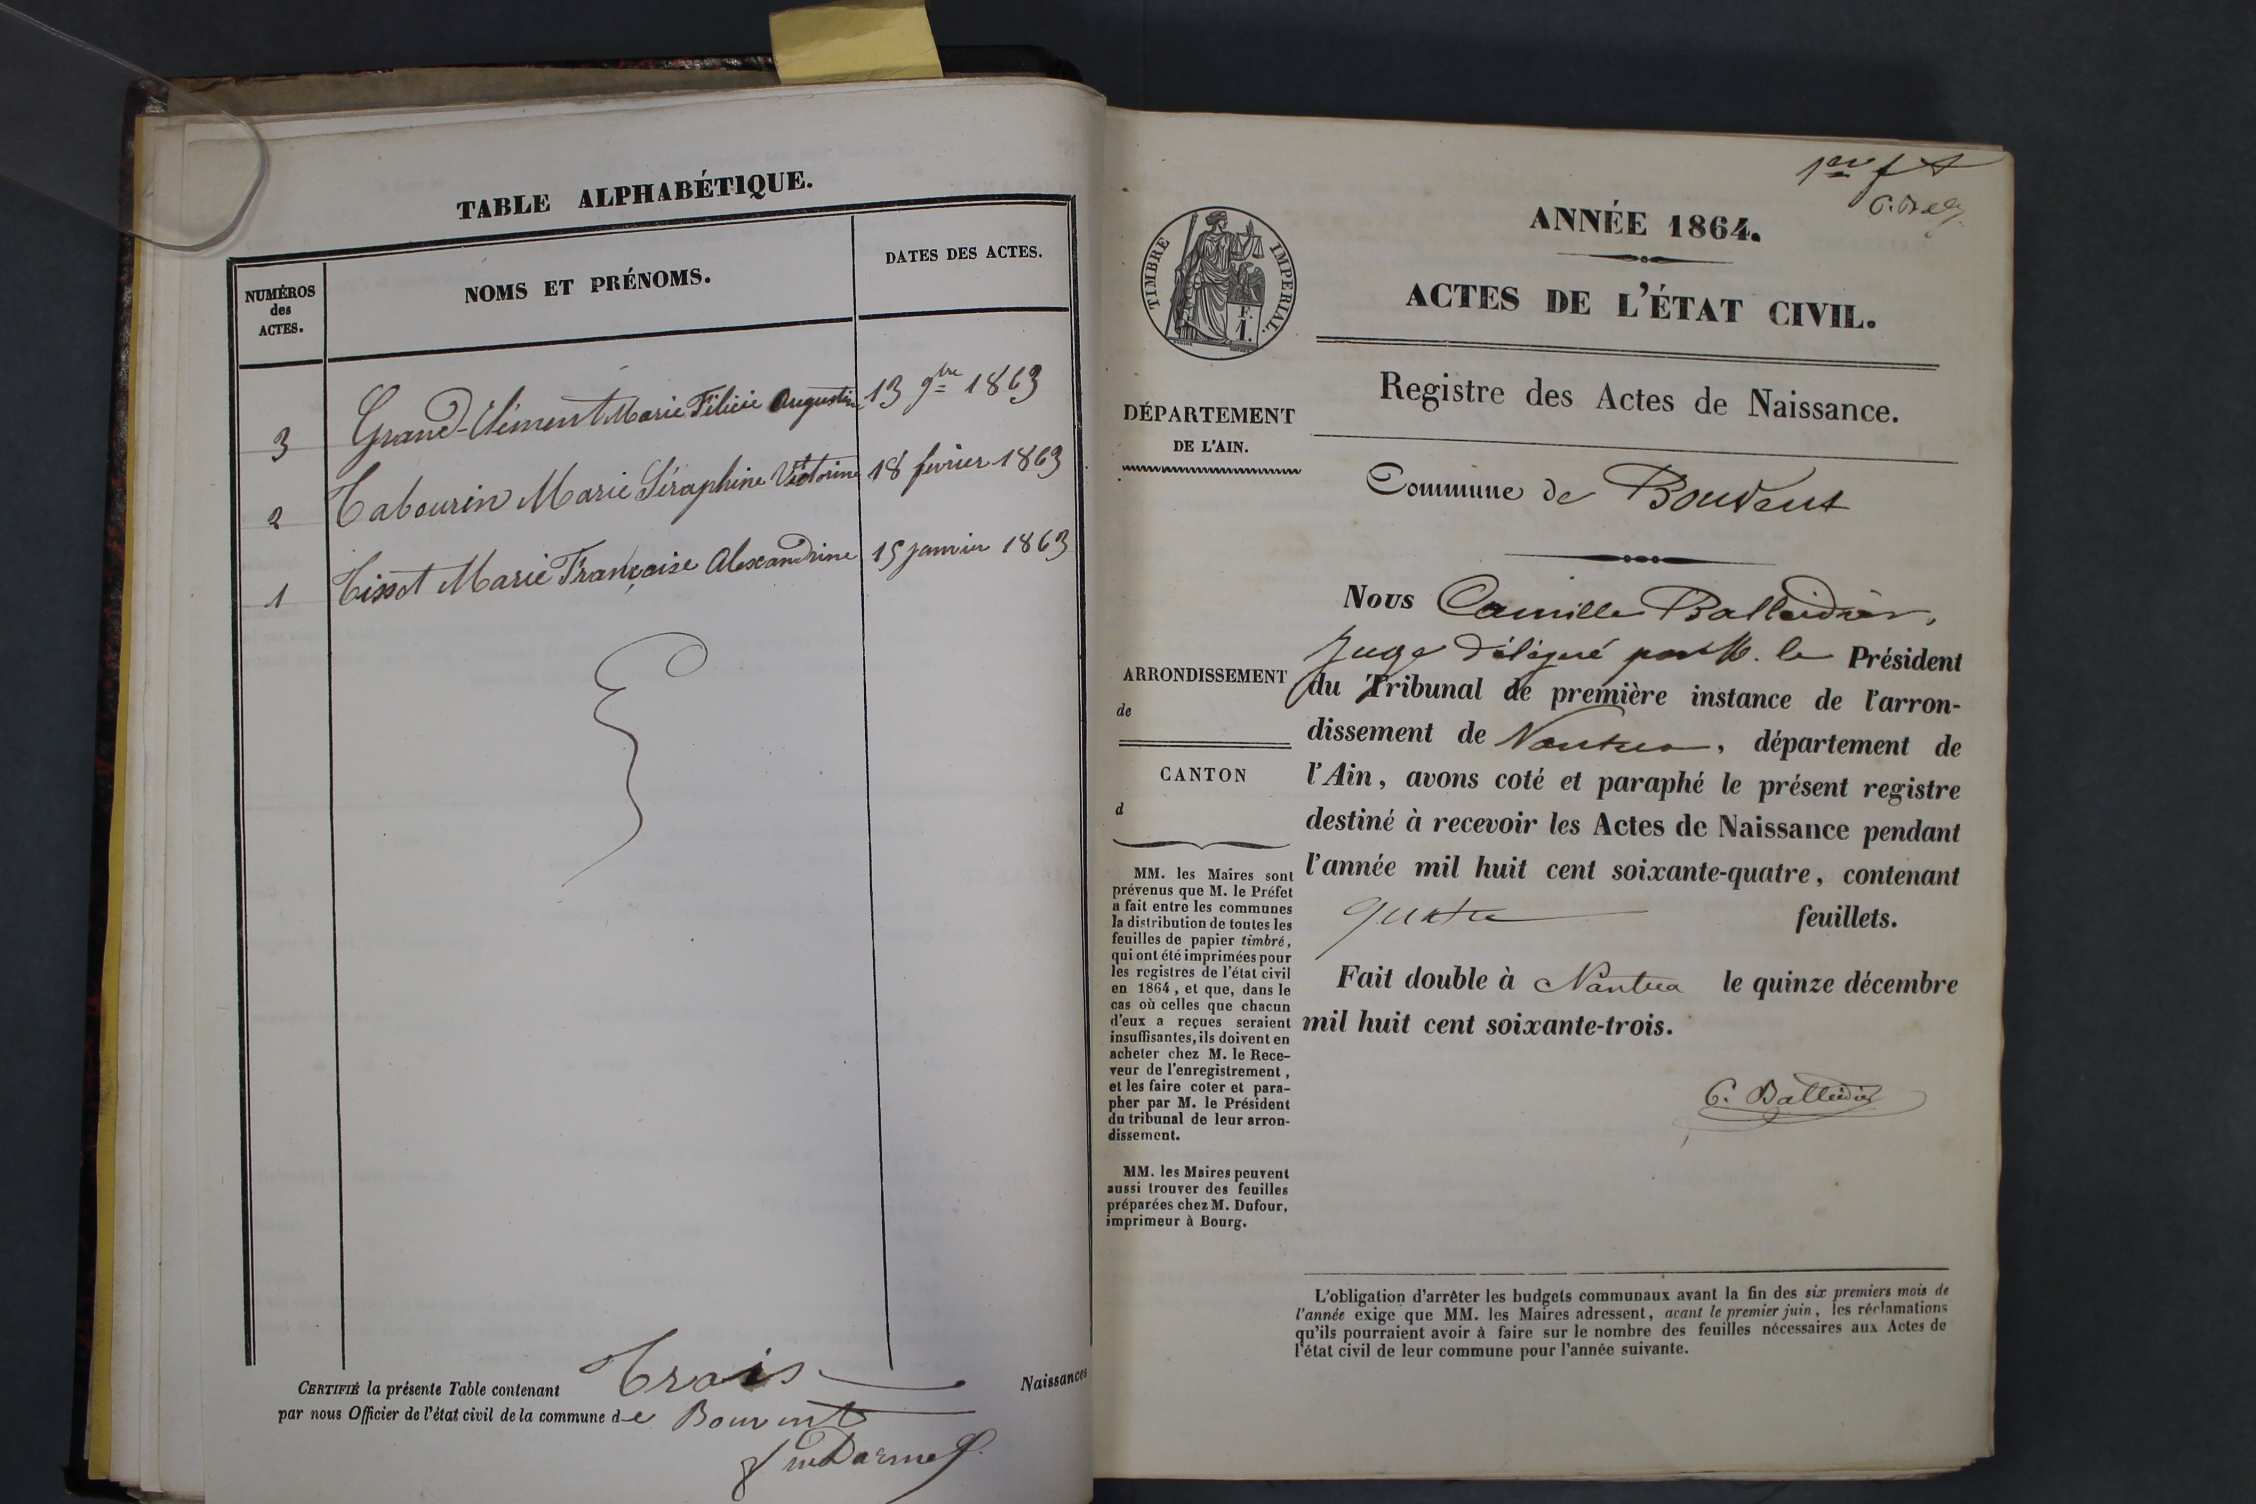 TABLE ALPHABÉTIQUE.
NUMÉROS
des
ACTES.
NOMS ET PRÉNOMS.
DATES DES ACTES.
3 Grand-Clément Marie Félicie Augustine 13 9bre 1863
2 Tabourin Marie Séraphine Victorine 18 février 1863
1 Tissot Marie Françoise Alexandrine 15 janvier 1863
CERTIFIÉ la présente Table contenant Trois Naissances
par nous Officier de l'état civil de la commune de Bouvent
1er
ANNÉE 1864.
ACTES DE L'ÉTAT CIVIL.
TIMBRE IMPERIAL.
F.
1.
Registre des Actes de Naissance.
DÉPARTEMENT
DE L'AIN.
Commune de Bouvent
Nous Camille Balleidier,
Juge délégué par M. le Président
du Tribunal de première instance de l'arron-
dissement de Nantua, département de
l'Ain, avons coté et paraphé le présent registre
destiné à recevoir les Actes de Naissance pendant
l'année mil huit cent soixante-quatre, contenant
quatre feuillets.
Fait double à Nantua le quinze décembre
mil huit cent soixante-trois.
C. Balleidier
ARRONDISSEMENT
de
CANTON
d
MM. les Maires sont
prévenus que M. le Préfet
a fait entre les communes
la distribution de toutes les
feuilles de papier timbré,
qui ont été imprimées pour
les registres de l'état civil
en 1864, et que, dans le
cas où celles que chacun
d'eux a reçues seraient
insuffisantes, ils doivent en
acheter chez M. le Rece-
veur de l'enregistrement,
et les faire coter et para-
pher par M. le Président
du tribunal de leur arron-
dissement.
MM. les Maires peuvent
aussi trouver des feuilles
préparées chez M. Dufour,
imprimeur à Bourg.
L'obligation d'arrêter les budgets communaux avant la fin des six premiers mois de
l'année exige que MM. les Maires adressent, avant le premier juin, les réclamations
qu'ils pourraient avoir à faire sur le nombre des feuilles nécessaires aux Actes de
l'état civil de leur commune pour l'année suivante.